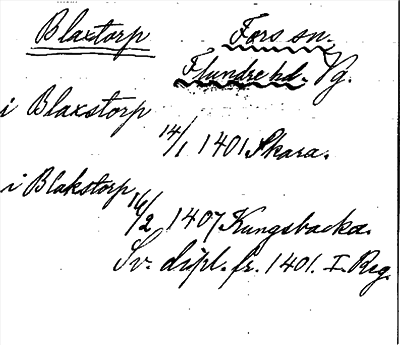 Blaxtorp Fors sn.
Flundre hd. Vg.
i Blaxstorp
14/1 1401 Skara.
i Blakstorp
16/2 1407 Kungsbacka.
Sv. dipl. fr. 1401. I. Reg.